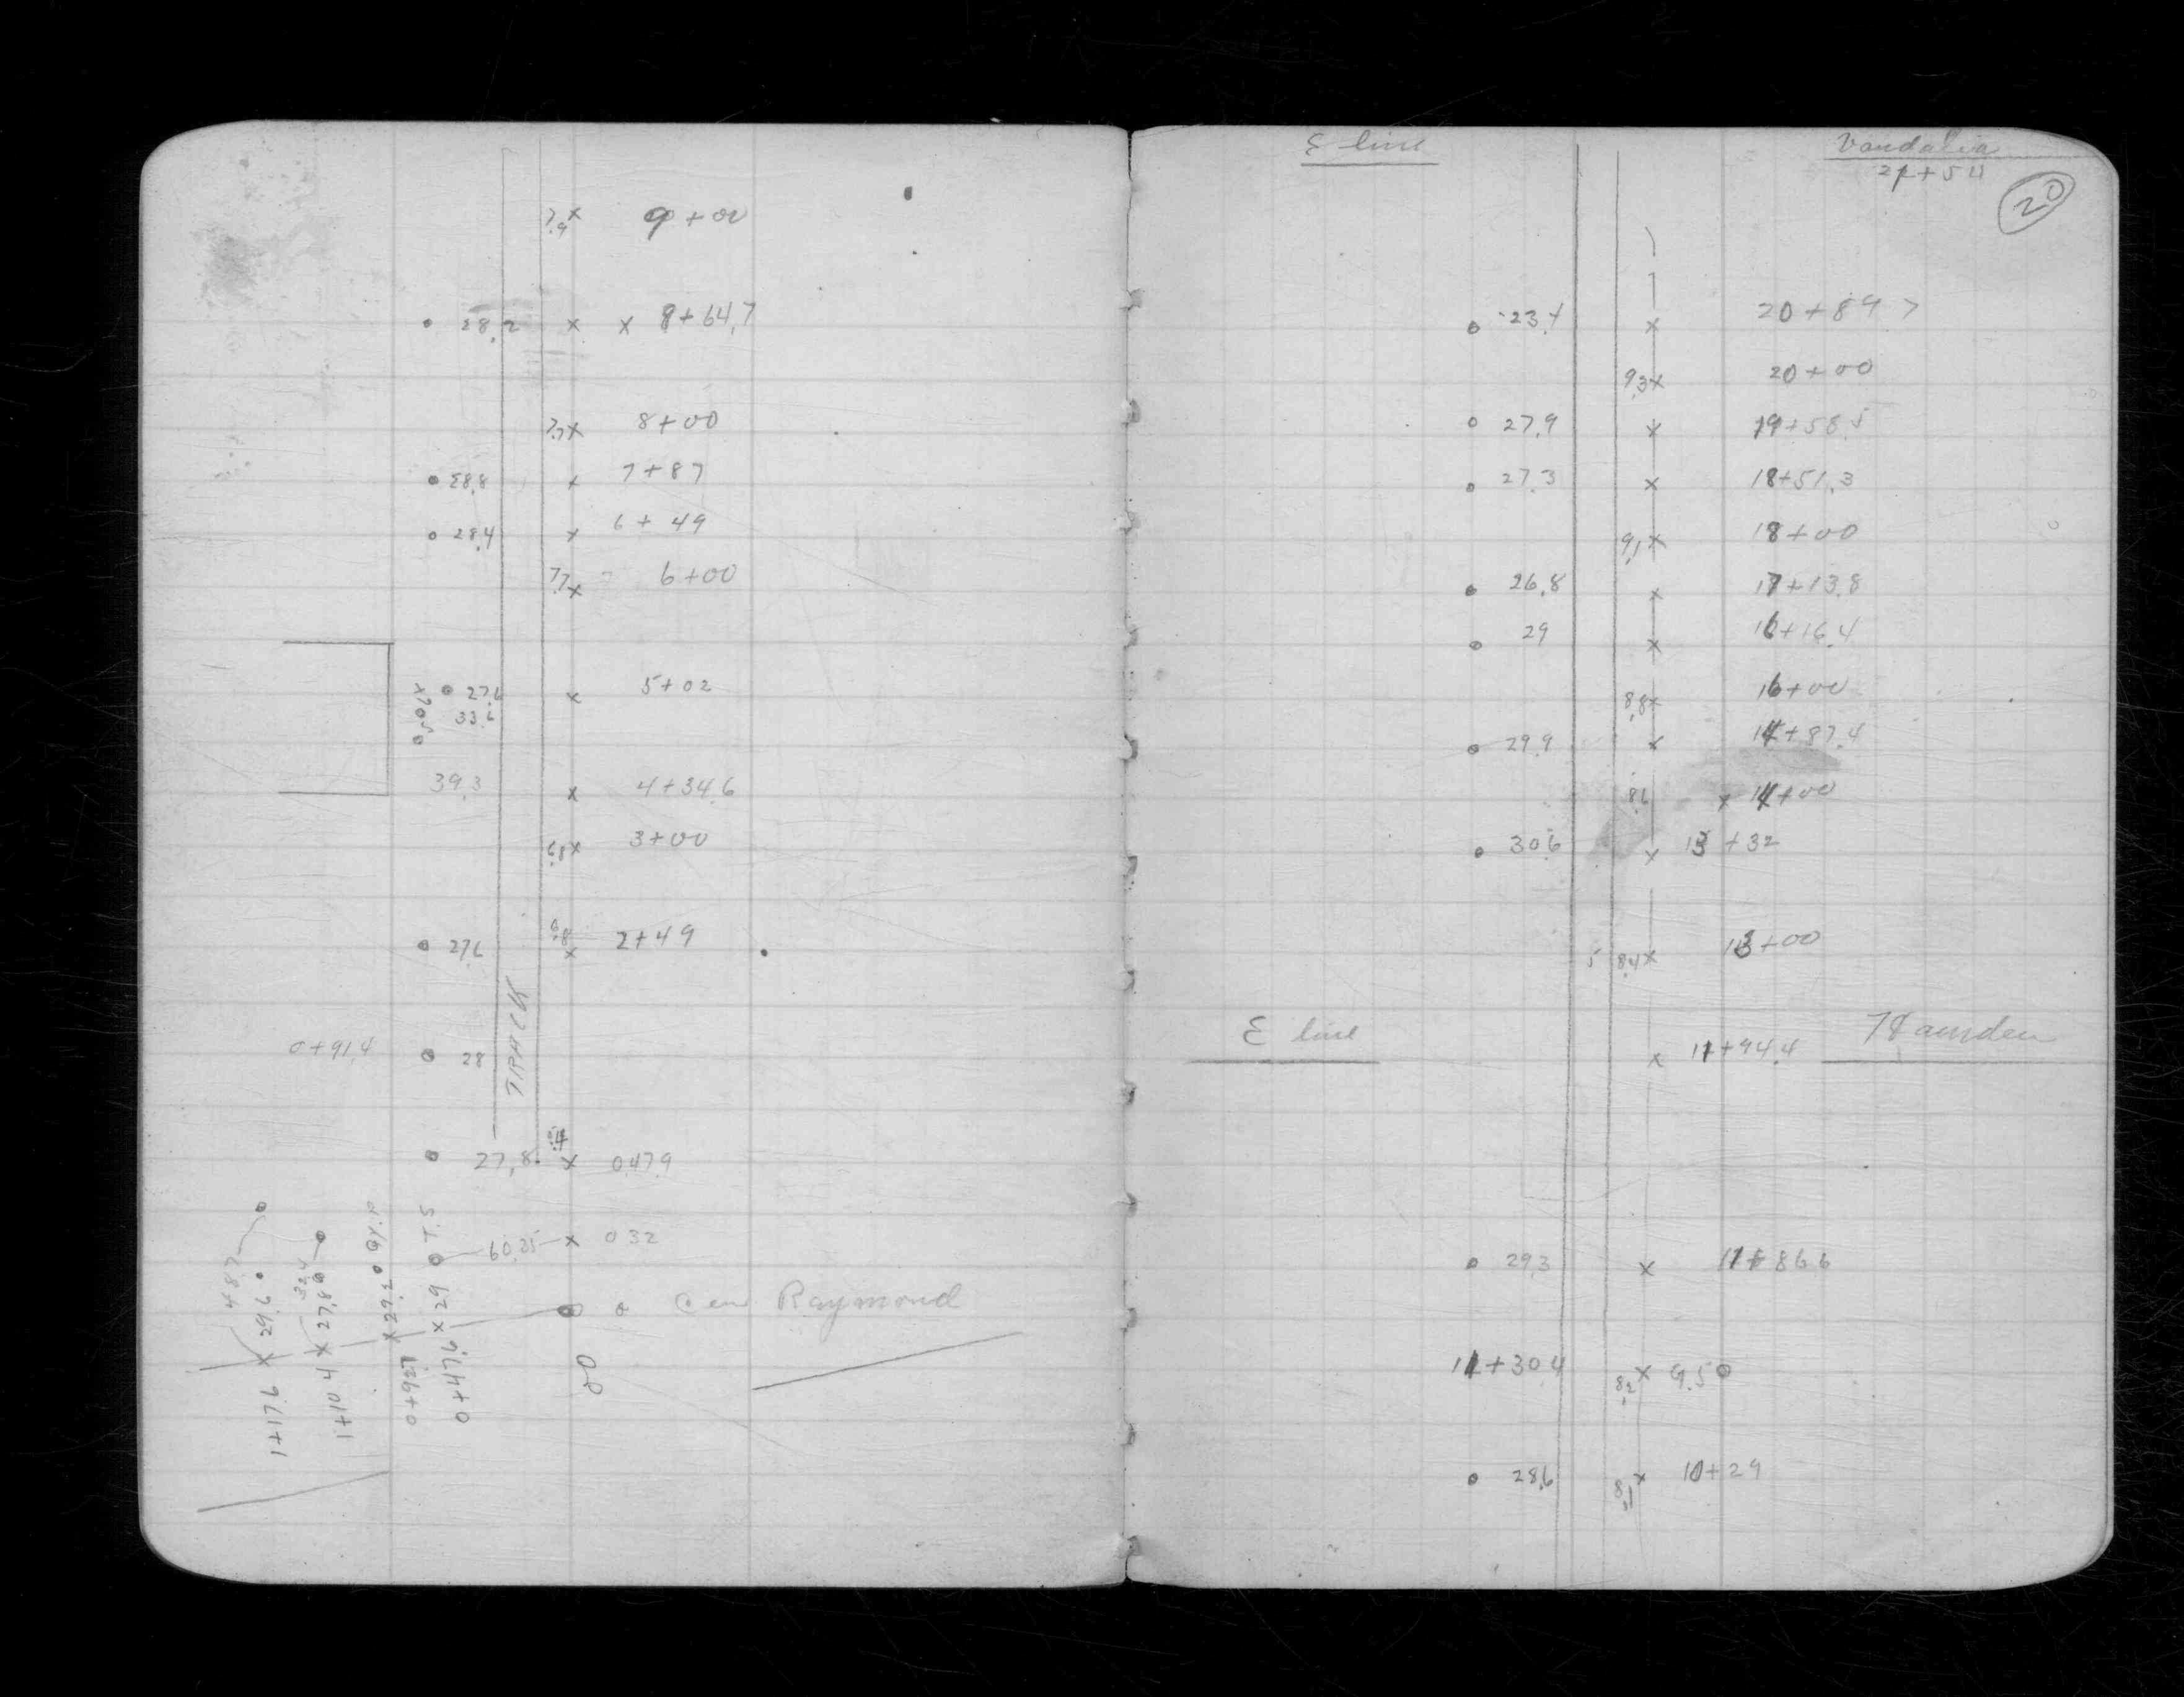 7.9 x 9+00
o 28.2 x x 8+64.7
7.7 x 8+00
o 28.8 x 7+87
o 28.4 x 6+49
7.7 x 6+00
o 27.6 x 5+02
33.6
39.3 x 4+34.6
x 3+00
o 27.6 x 2+49
TRACK
0+91.4 o 28
o 27.8 x 047.9
60.25 x 0 32
o Cen Raymond
00
48.7
1+17.6 x 29.7
32.4
1+10 4 x 27.8
0+92.7 x 29.2
0+47.9 x 29 o T.S
E line Vandalia
21+54
20
o 23.4 x 20+89 7
9.3 x 20+00
o 27.9 x 19+58.5
o 27.3 x 18+51.3
9.1 x 18+00
o 26.8 x 17+13.8
o 29 x 16+16.4
8.8 x 16+00
o 29.9 x 14+87.4
x 14+00
o 30.6 x 13+32
8.4 x 13+00
E line Hamden
x 11+94.4
o 29.3 x 11+86.6
11+30.4 8.2 x 9.5 o
o 28.6 8.1 x 10+29